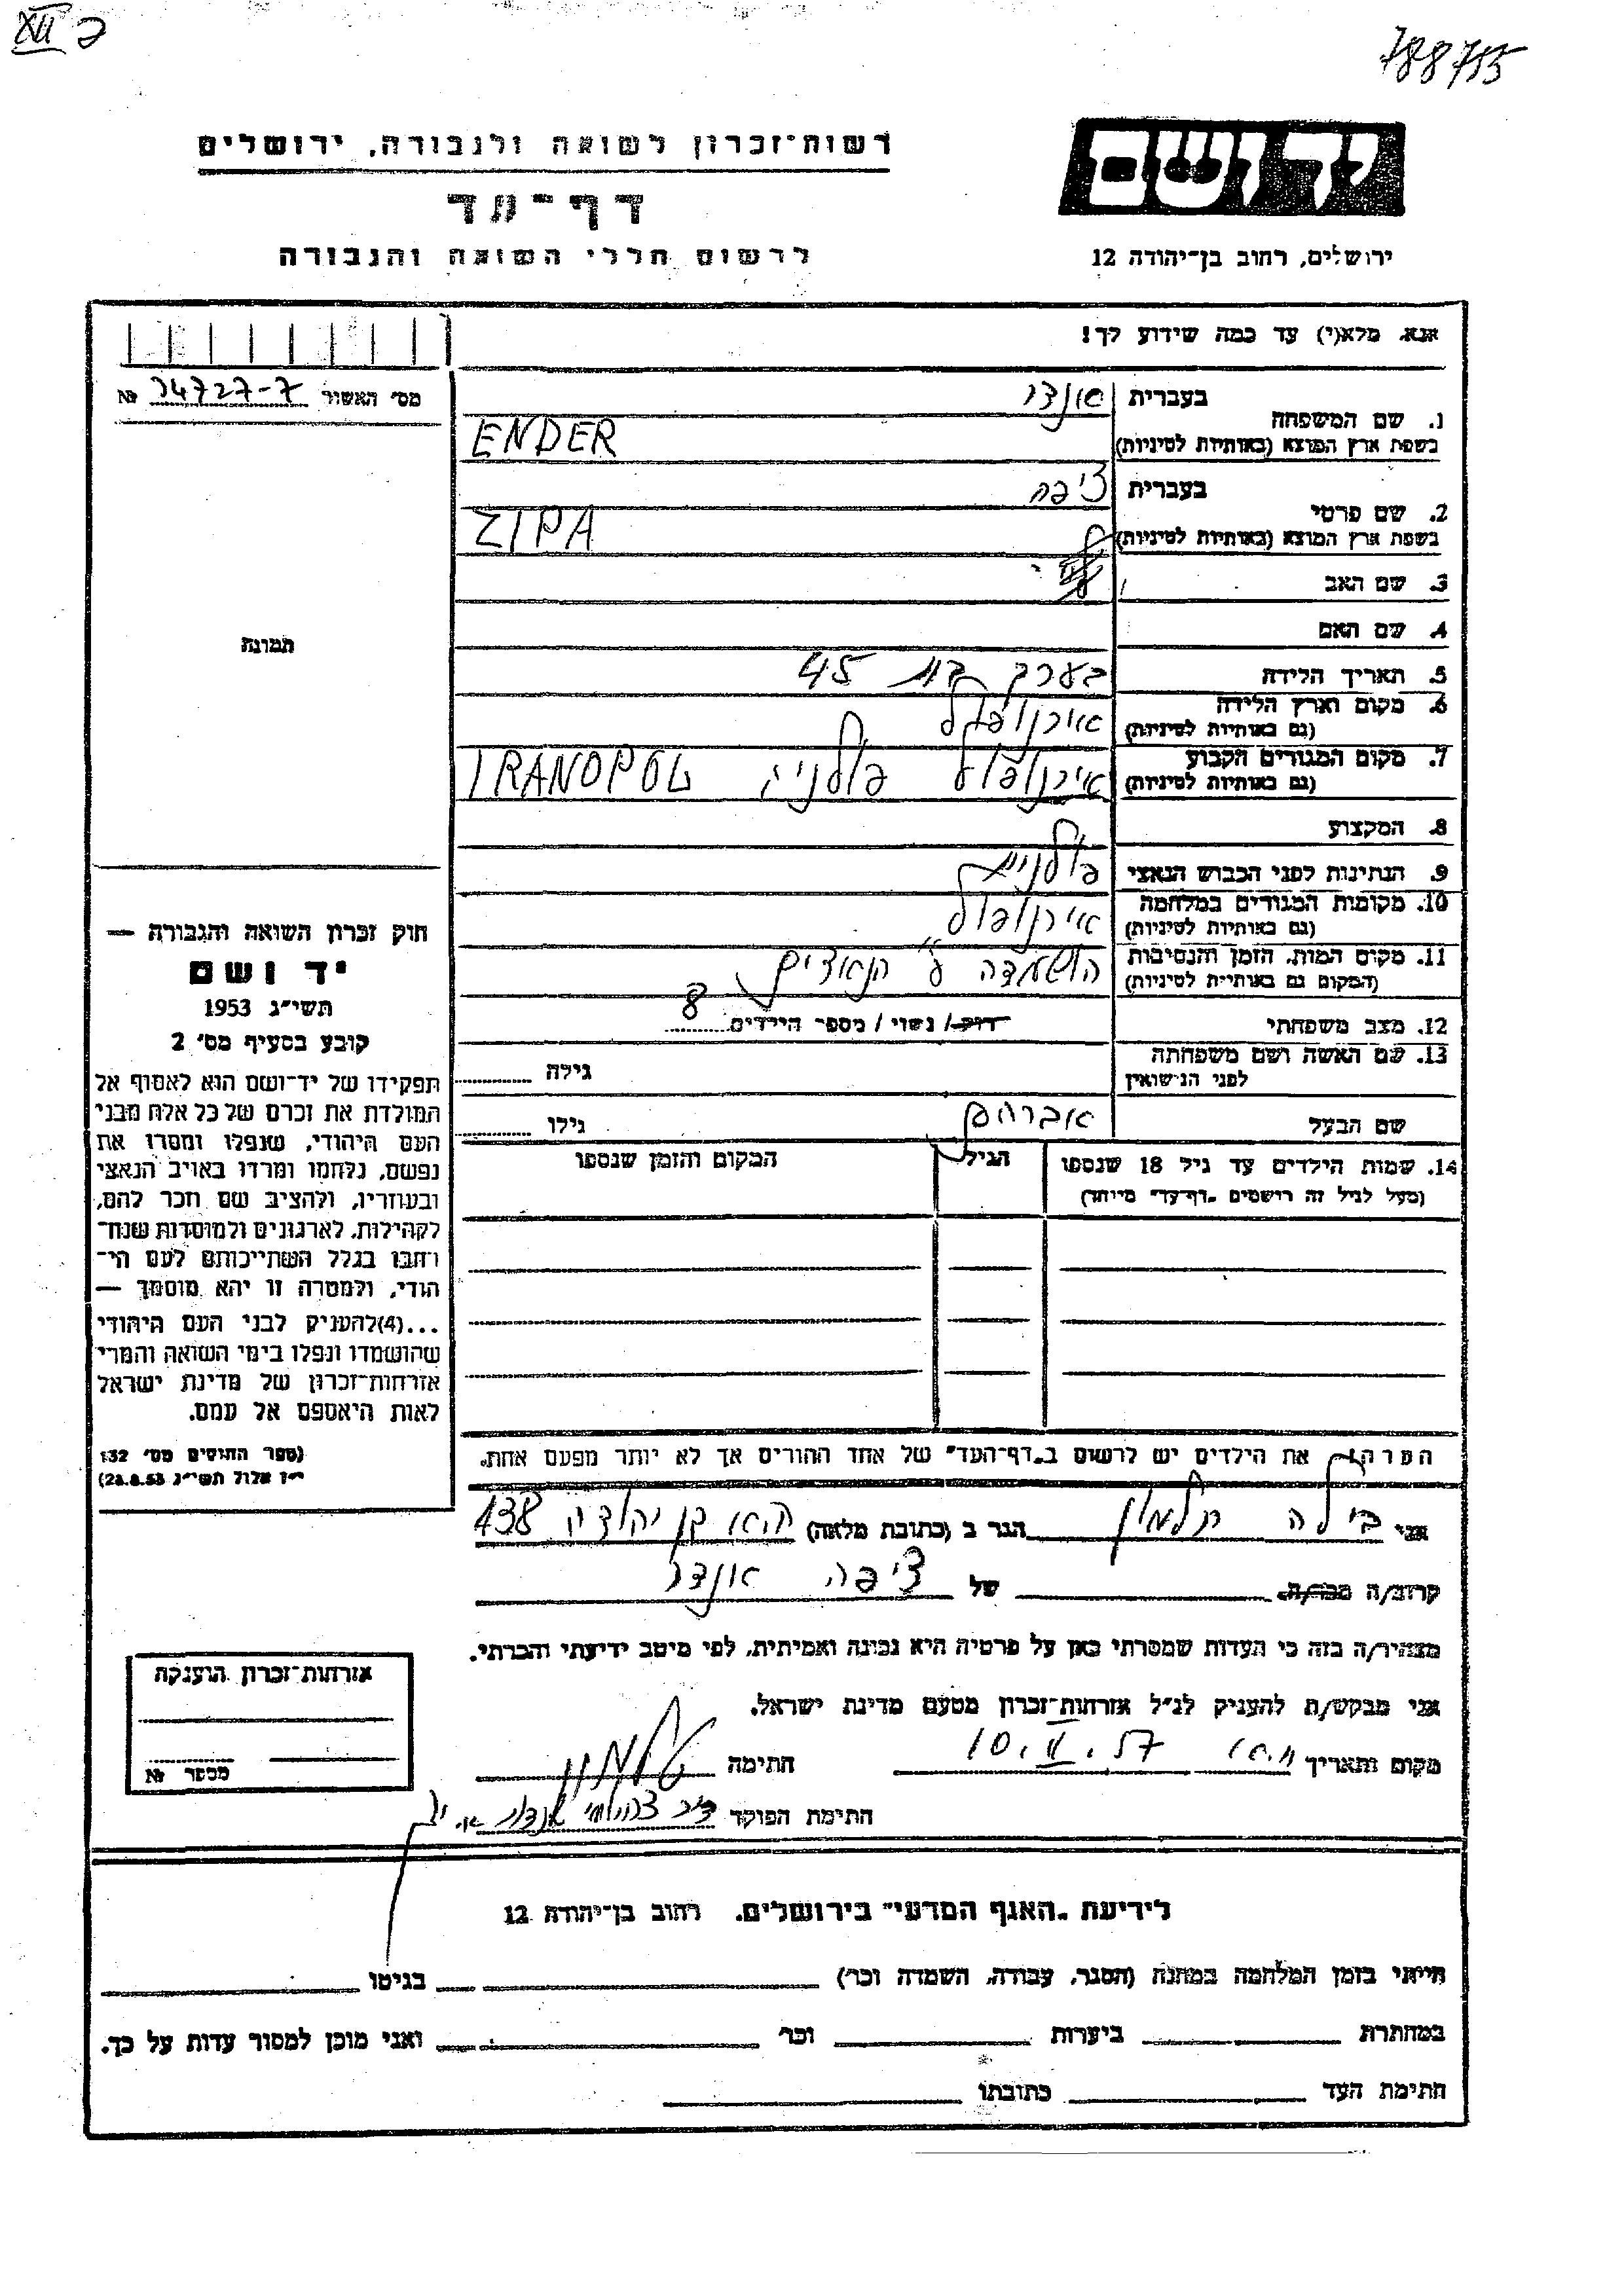 XII כ
788755
יד ושם
רשות־זכרון לשואה ולגבורה, ירושלים
דף־עד
לרשום חללי השואה והגבורה
ירושלים, רחוב בן־יהודה 12
אנא, מלא(י) עד כמה שידוע לך!
מס' האשור 34727-7 №
תמונה
1. שם המשפחה
בעברית אנדר
בשפת ארץ המוצא (באותיות לטיניות) ENDER
2. שם פרטי
בעברית ציפה
בשפת ארץ המוצא (באותיות לטיניות) ZIPA
3. שם האב
4. שם האם
5. תאריך הלידה בערך בת 45
6. מקום וארץ הלידה אירנופול
(גם באותיות לטיניות)
7. מקום המגורים הקבוע אירנופול פולניה IRANOPOL
(גם באותיות לטיניות)
8. המקצוע
9. הנתינות לפני הכבוש הנאצי פולנית
10. מקומות המגורים במלחמה אירנופול
(גם באותיות לטיניות)
11. מקום המות, הזמן והנסיבות הושמדה ע"י הנאצים
(המקום גם באותיות לטיניות)
12. מצב משפחתי רווק / נשוי / מספר הילדים 8
13. שם האשה ושם משפחתה
לפני הנישואין גילה
שם הבעל אברהם גילו
14. שמות הילדים עד גיל 18 שנספו הגיל המקום והזמן שנספו
(מעל לגיל זה רושמים "דף־עד" מיוחד)
חוק זכרון השואה והגבורה —
יד ושם
תשי"ג 1953
קובע בסעיף מס' 2
תפקידו של יד־ושם הוא לאסוף אל
המולדת את זכרם של כל אלה מבני
העם היהודי, שנפלו ומסרו את
נפשם, נלחמו ומרדו באויב הנאצי
ובעוזריו, ולהציב שם וזכר להם,
לקהילות, לארגונים ולמוסדות שנח־
רבו בגלל השתייכותם לעם הי־
הודי, ולמטרה זו יהא מוסמך —
...(4) להעניק לבני העם היהודי
שהושמדו ונפלו בימי השואה והמרי
אזרחות־זכרון של מדינת ישראל
לאות היאספם אל עמם.
(ספר החוקים מס' 132
י"ז אלול תשי"ג 28.8.53)
הערה: את הילדים יש לרשום ב"דף־העד" של אחד ההורים אך לא יותר מפעם אחת.
אני בילה תלמון הגר ב (כתובת מלאה) בן יהודה 138
קרוב/ה מכר/ה של ציפה אנדר
מצהיר/ה בזה כי העדות שמסרתי כאן על פרטיה היא נכונה ואמיתית, לפי מיטב ידיעתי והכרתי.
אני מבקש/ת להעניק לנ"ל אזרחות־זכרון מטעם מדינת ישראל.
מקום ותאריך 10.II.57 חתימה תלמון
חתימת הפוקד
אזרחות־זכרון הוענקה
מספר №
לידיעת "האגף המדעי" בירושלים, רחוב בן־יהודה 12
הייתי בזמן המלחמה במחנה (הסגר, עבודה, השמדה וכו') בגיטו
במחתרת ביערות וכו' ואני מוכן למסור עדות על כך.
חתימת העד כתובתו